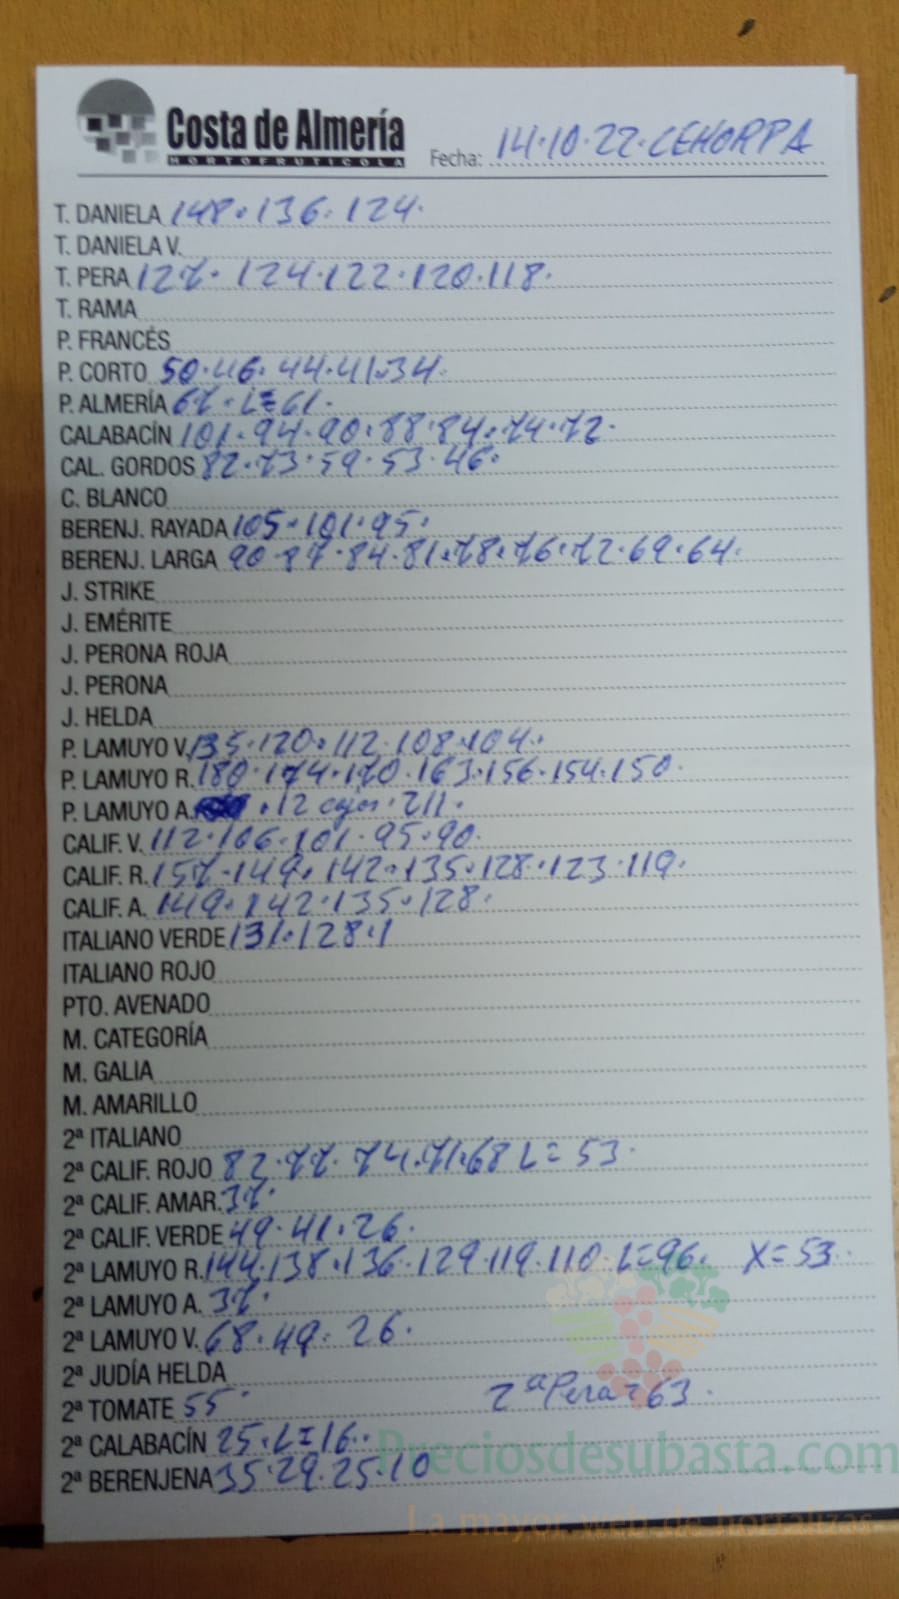 Costa de Almería
HORTOFRUTICOLA
Fecha: 14·10·22·CEHORPA
T. DANIELA 148·136·124·
T. DANIELA V.
T. PERA 127·124·122·120·118·
T. RAMA
P. FRANCÉS
P. CORTO 50·46·44·41·34·
P. ALMERÍA 67·L=61·
CALABACÍN 101·94·90·88·84·74·72·
CAL. GORDOS 82·73·59·53·46·
C. BLANCO
BERENJ. RAYADA 105·101·95·
BERENJ. LARGA 90·87·84·81·78·76·72·69·64·
J. STRIKE
J. EMÉRITE
J. PERONA ROJA
J. PERONA
J. HELDA
P. LAMUYO V. 135·120·112·108·104·
P. LAMUYO R. 180·174·170·163·156·154·150·
P. LAMUYO A. ·12 cajas·211·
CALIF. V. 112·106·101·95·90·
CALIF. R. 157·149·142·135·128·123·119·
CALIF. A. 149·142·135·128·
ITALIANO VERDE 131·128·1
ITALIANO ROJO
PTO. AVENADO
M. CATEGORÍA
M. GALIA
M. AMARILLO
2ª ITALIANO
2ª CALIF. ROJO 82·77·74·71·68 L=53·
2ª CALIF. AMAR. 37·
2ª CALIF. VERDE 49·41·26·
2ª LAMUYO R. 144·138·136·129·119·110·L=96· X=53·
2ª LAMUYO A. 37·
2ª LAMUYO V. 68·49·26·
2ª JUDÍA HELDA
2ª TOMATE 55· 2ª Pera=63·
2ª CALABACÍN 25·L=16·
2ª BERENJENA 35·29·25·10
Preciosdesubasta.com
La mayor web de hortalizas